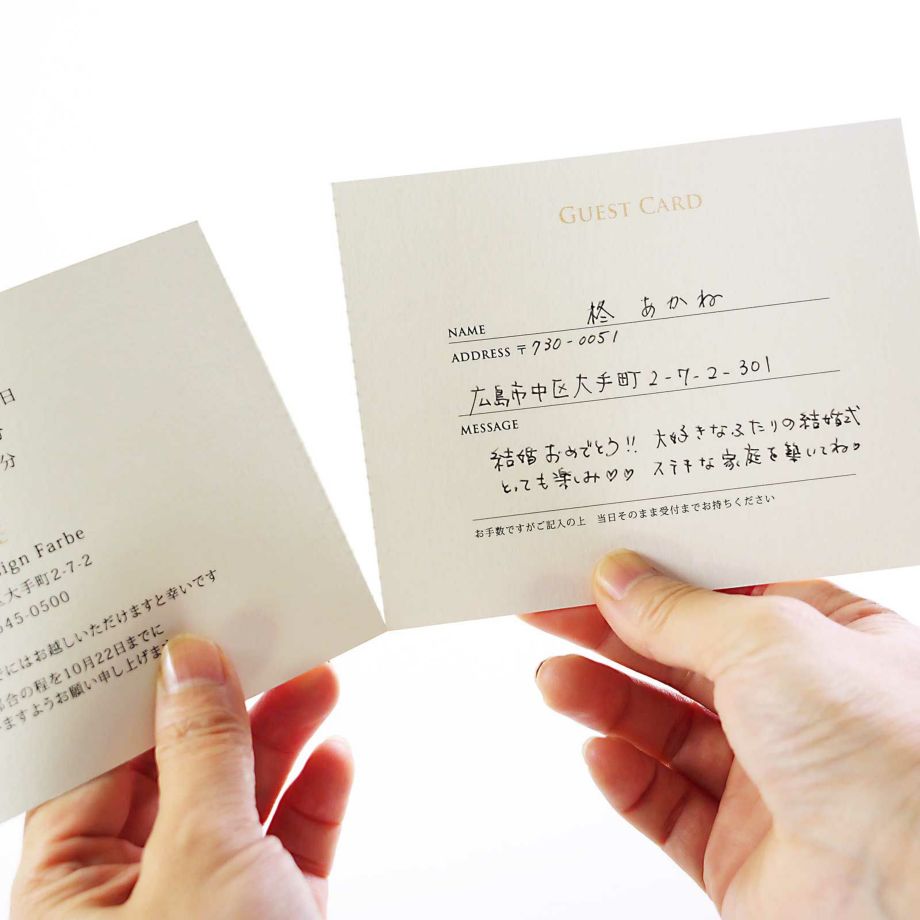 日
分
sign Farbe
大手町2-7-2
545-0500
にはお越しいただけますと幸いです
合の程を10月22日までに
ますようお願い申し上げま
GUEST CARD
NAME 柊 あかね
ADDRESS 〒730-0051
広島市中区大手町2-7-2-301
MESSAGE
結婚おめでとう!! 大好きなふたりの結婚式
とっても楽しみ♡♡ ステキな家庭を築いてね♡
お手数ですがご記入の上 当日そのまま受付までお持ちください